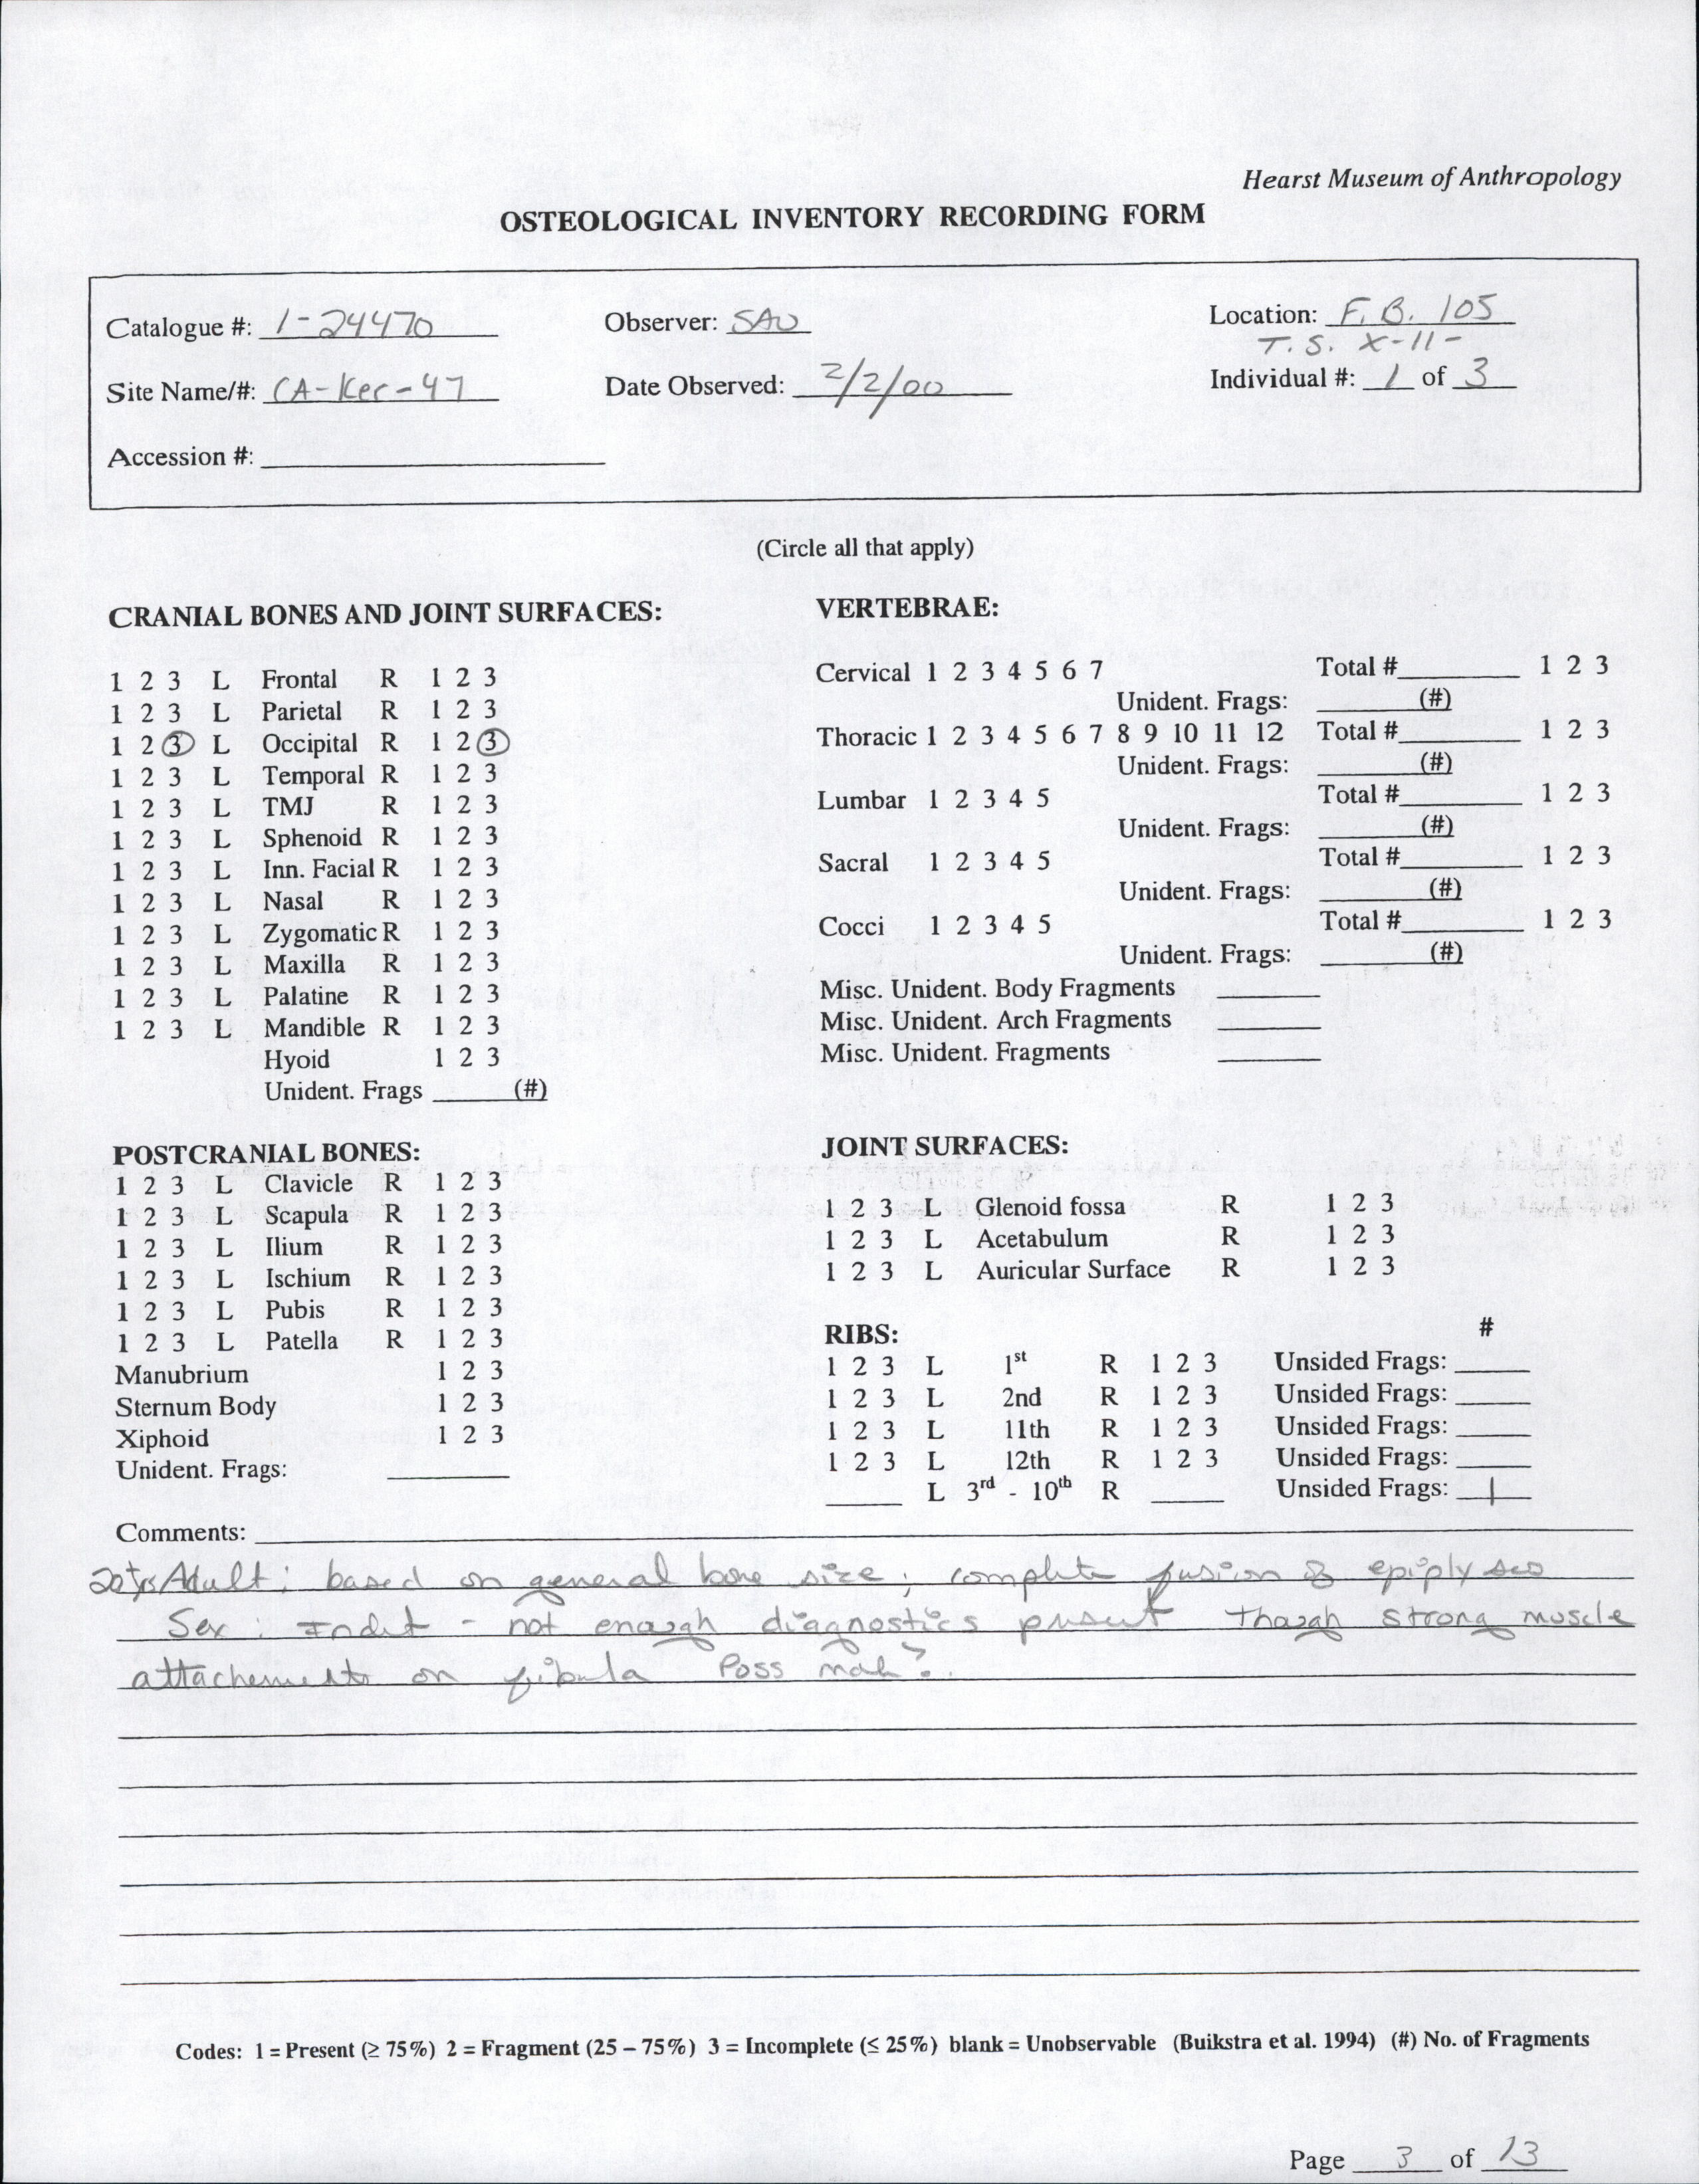 Hearst Museum of Anthropology
OSTEOLOGICAL INVENTORY RECORDING FORM
Catalogue #: 1-24470 Observer: SAW Location: F.B. 105
T.S. X-11-
Site Name/#: CA-Ker-47 Date Observed: 2/2/00 Individual #: 1 of 3
Accession #:
(Circle all that apply)
CRANIAL BONES AND JOINT SURFACES:
1 2 3 L Frontal R 1 2 3
1 2 3 L Parietal R 1 2 3
1 2 3 L Occipital R 1 2 3
1 2 3 L Temporal R 1 2 3
1 2 3 L TMJ R 1 2 3
1 2 3 L Sphenoid R 1 2 3
1 2 3 L Inn. Facial R 1 2 3
1 2 3 L Nasal R 1 2 3
1 2 3 L Zygomatic R 1 2 3
1 2 3 L Maxilla R 1 2 3
1 2 3 L Palatine R 1 2 3
1 2 3 L Mandible R 1 2 3
Hyoid 1 2 3
Unident. Frags (#)
VERTEBRAE:
Cervical 1 2 3 4 5 6 7 Total # 1 2 3
Unident. Frags: (#)
Thoracic 1 2 3 4 5 6 7 8 9 10 11 12 Total # 1 2 3
Unident. Frags: (#)
Lumbar 1 2 3 4 5 Total # 1 2 3
Unident. Frags: (#)
Sacral 1 2 3 4 5 Total # 1 2 3
Unident. Frags: (#)
Cocci 1 2 3 4 5 Total # 1 2 3
Unident. Frags: (#)
Misc. Unident. Body Fragments
Misc. Unident. Arch Fragments
Misc. Unident. Fragments
POSTCRANIAL BONES:
1 2 3 L Clavicle R 1 2 3
1 2 3 L Scapula R 1 2 3
1 2 3 L Ilium R 1 2 3
1 2 3 L Ischium R 1 2 3
1 2 3 L Pubis R 1 2 3
1 2 3 L Patella R 1 2 3
Manubrium 1 2 3
Sternum Body 1 2 3
Xiphoid 1 2 3
Unident. Frags:
JOINT SURFACES:
1 2 3 L Glenoid fossa R 1 2 3
1 2 3 L Acetabulum R 1 2 3
1 2 3 L Auricular Surface R 1 2 3
RIBS: #
1 2 3 L 1st R 1 2 3 Unsided Frags:
1 2 3 L 2nd R 1 2 3 Unsided Frags:
1 2 3 L 11th R 1 2 3 Unsided Frags:
1 2 3 L 12th R 1 2 3 Unsided Frags:
L 3rd - 10th R Unsided Frags: 1
Comments:
20+yrs Adult; based on general bone size; complete fusion of epiplyses
Sex: Indet - not enough diagnostics present though strong muscle
attachements on fibula Poss male?.
Codes: 1 = Present (≥ 75%) 2 = Fragment (25 – 75%) 3 = Incomplete (≤ 25%) blank = Unobservable (Buikstra et al. 1994) (#) No. of Fragments
Page 3 of 13